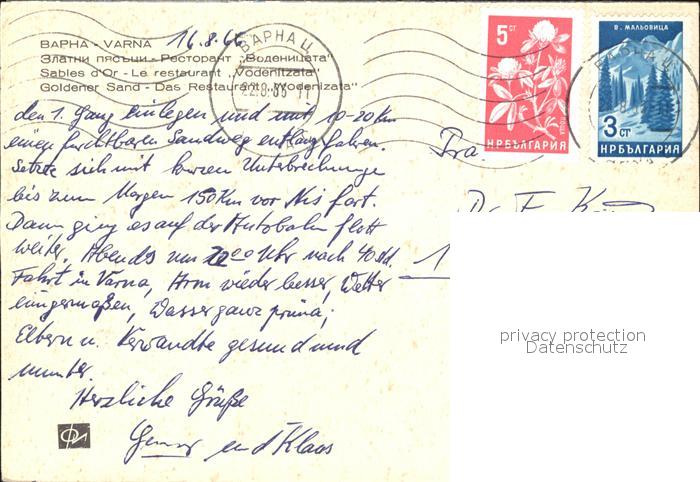 ВАРНА - VARNA 16.8.66
Златни пясъци - Ресторант „Воденицата"
Sables d'Or - Le restaurant „Vodenitzata"
Goldener Sand - Das Restaurant „Wodenizata"
ВАРНА Ц
22.8.
5 СТ
НР БЪЛГАРИЯ
В. МАЛЬОВИЦА
3 СТ
НР БЪЛГАРИЯ
den 1. Gang einlegen und mit 10-20 Km
einen furchtbaren Sandweg entlang fahren.
Setzte sich mit kurzen Unterbrechungen
bis zum Morgen 150 Km vor Nis fort.
Dann ging es auf der Autobahn flott
weiter. Abends um 22.00 Uhr nach 40 Std.
Fahrt in Varna, Arm wieder besser, Wetter
einigermaßen, Wasser ganz prima,
Eltern u. Verwandte gesund und
munter.
Herzliche Grüße
und Klaos
Fra.
Dr. F.
1
privacy protection
Datenschutz